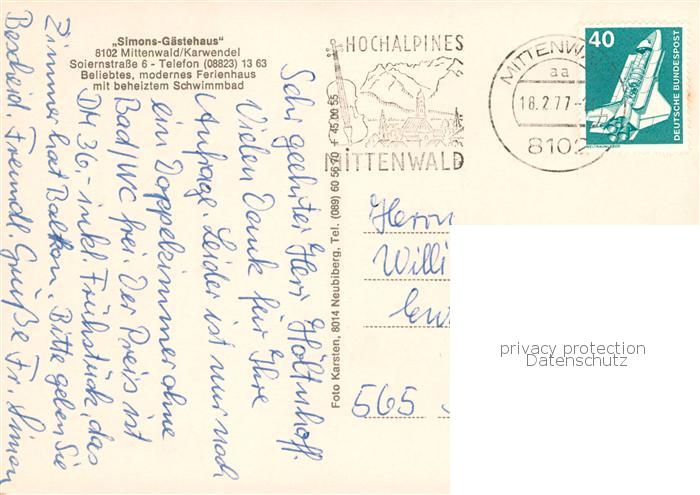 „Simons-Gästehaus"
8102 Mittenwald/Karwendel
Soiernstraße 6 - Telefon (08823) 13 63
Beliebtes, modernes Ferienhaus
mit beheiztem Schwimmbad
HOCHALPINES
MITTENWALD
MITTENWA
aa
18.2.77
8102
40
DEUTSCHE BUNDESPOST
WELTRAUMLABOR
Sehr geehrter Herr Hölterhoff.
Vielen Dank für Ihre
Anfrage. Leider ist nur noch
ein Doppelzimmer ohne
Bad/WC frei. Der Preis ist
DM 36,- inkl. Frühstück, das
Zimmer hat Balkon. Bitte geben Sie
Bescheid. Freundl. Grüße Fr. Simon
Foto Karsten, 8014 Neubiberg, Tel. (089) 60 56 70 + 45 00 55
Herrn
Willi
565
privacy protection
Datenschutz